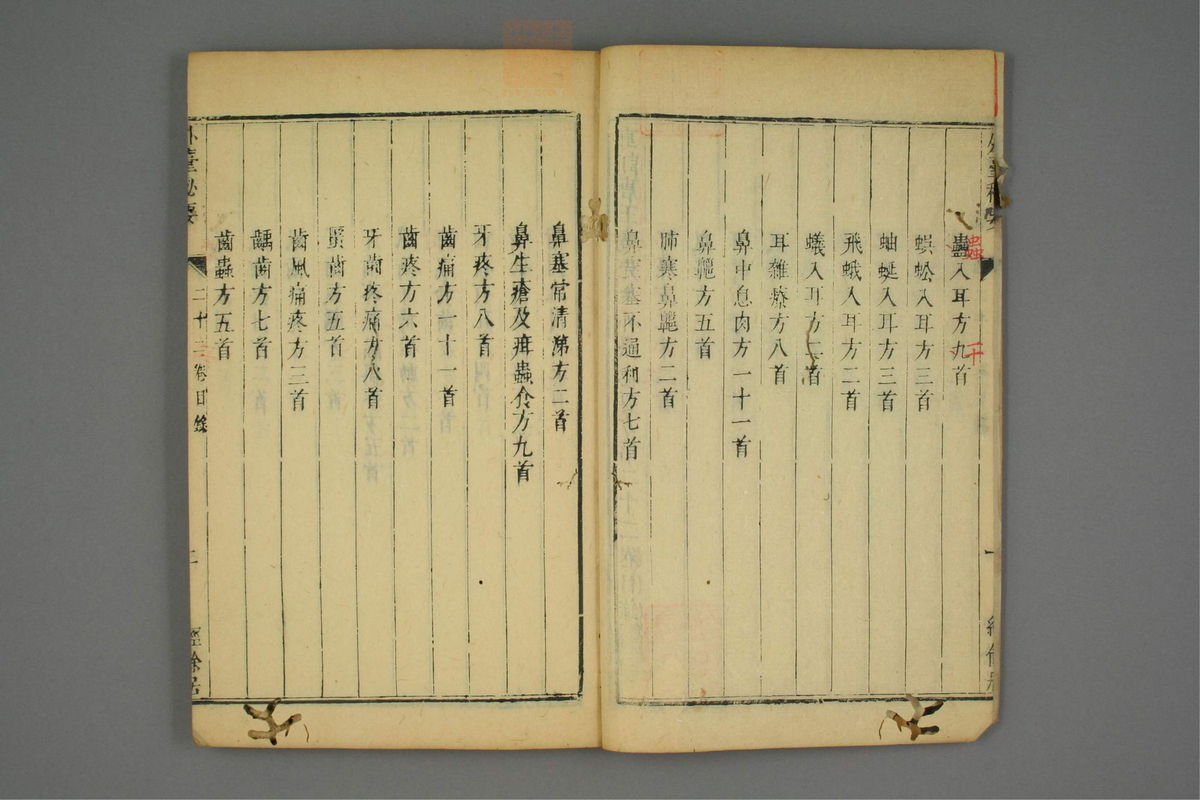 蠱入耳方九首
蟲
二十
蜈蚣入耳方三首
蚰蜒入耳方三首
飛蛾入耳方二首
蟻入耳方二首
耳雜療方八首
鼻中息肉方一十一首
鼻鼽方五首
肺寒鼻鼽方二首
鼻窒塞不通利方七首
外臺秘要
一
經餘居
鼻塞常清涕方二首
鼻生瘡及疳蟲食方九首
牙疼方八首
齒痛方一十一首
齒疼方六首
牙齒疼痛方八首
䘌齒方五首
齒風痛疼方三首
齲齒方七首
齒蟲方五首
外臺秘要
二十二卷目錄
二
經餘居